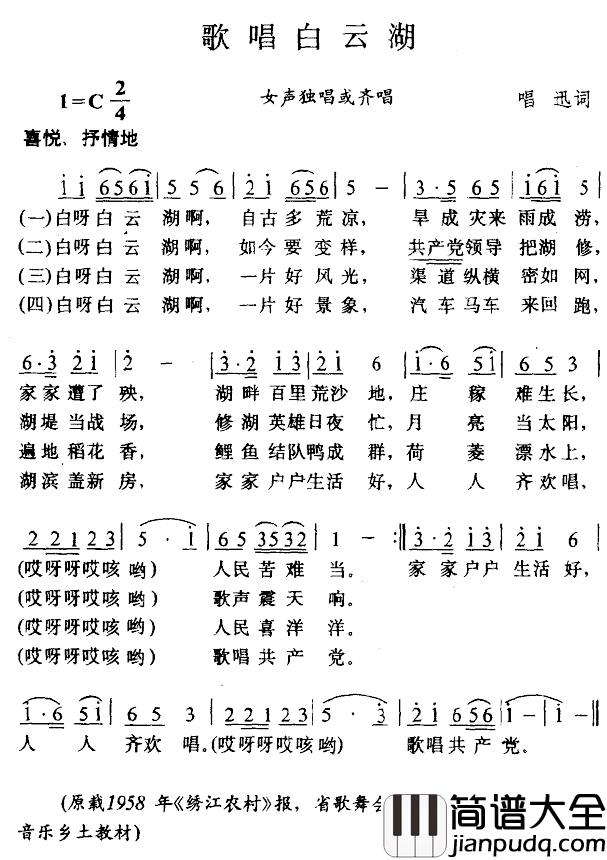 歌唱白云湖
1=C 2/4
女声独唱或齐唱
唱 迅词
喜悦、抒情地
i i 6561 | 5 5 6 | 2 i 656 | 5 - | 3·5 65 | i6i 5 |
(一)白呀白云 湖啊, 自古多荒凉, 旱成灾来雨成涝,
(二)白呀白云 湖啊, 如今要变样, 共产党领导把湖修,
(三)白呀白云 湖啊, 一片好风光, 渠道纵横密如网,
(四)白呀白云 湖啊, 一片好景象, 汽车马车来回跑,
6·3 2i | 2 - | 3·2 i3 | 2i 6 | i·6 5i | 6 5 3 |
家家遭了殃, 湖畔百里荒沙地,庄稼难生长,
湖堤当战场, 修湖英雄日夜忙,月亮当太阳,
遍地稻花香, 鲤鱼结队鸭成群,荷菱漂水上,
湖滨盖新房, 家家户户生活好,人人齐欢唱,
2 2123 | 5·i | 65 3532 | 1 - :‖ 3·2 i3 | 2i 6 |
(哎呀呀哎咳哟) 人民苦难当。 家家户户生活好,
(哎呀呀哎咳哟) 歌声震天响。
(哎呀呀哎咳哟) 人民喜洋洋。
(哎呀呀哎咳哟) 歌唱共产党。
i·6 5i | 6 5 3 | 2 2123 | 5·3 | 2i 656 | i - | i - ‖
人人齐欢唱。(哎呀呀哎咳哟) 歌唱共产党。
(原载1958年《绣江农村》报,省歌舞会
音乐乡土教材)
简谱大全
www.jianpudq.com